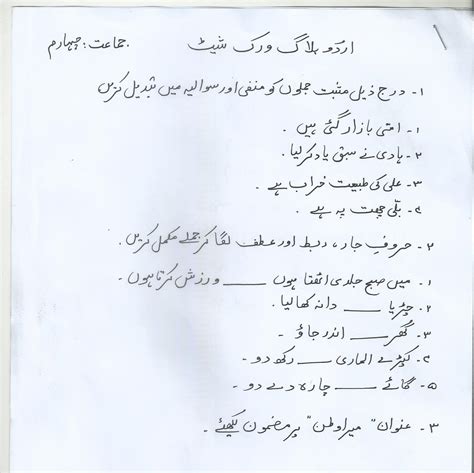 اردو بلاگ ورک شیٹ جماعت: چہارم
۱- درج ذیل مثبت جملوں کو منفی اور سوالیہ میں تبدیل کریں
۱- امی بازار گئی ہیں۔
۲- ہادی نے سبق یاد کر لیا۔
۳- علی کی طبیعت خراب ہے۔
۴- بلی چھت پہ ہے۔
۲- حروف جار، ربط اور عطف لگا کر جملے مکمل کریں۔
۱- میں صبح جلدی اٹھتا ہوں ____ ورزش کرتا ہوں۔
۲- چڑیا ____ دانہ کھا لیا۔
۳- گھر ____ اندر جاؤ۔
۴- کپڑے الماری ____ رکھ دو۔
۵- گائے ____ چارہ دے دو۔
۳- عنوان "میرا وطن" پر مضمون لکھیئے۔